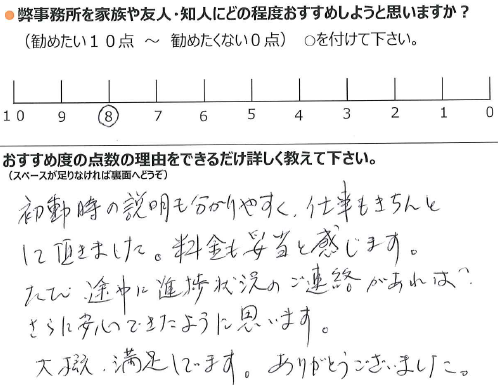 ●弊事務所を家族や友人・知人にどの程度おすすめしようと思いますか？
（勧めたい１０点　～　勧めたくない０点）　○を付けて下さい。
10 9 8 7 6 5 4 3 2 1 0
おすすめ度の点数の理由をできるだけ詳しく教えて下さい。
（スペースが足りなければ裏面へどうぞ）
初動時の説明も分かりやすく、仕事もきちんと
して頂きました。料金も妥当と感じます。
ただ、途中に進捗状況のご連絡があれば、
さらに安心できたように思います。
大変、満足しています。ありがとうございました。